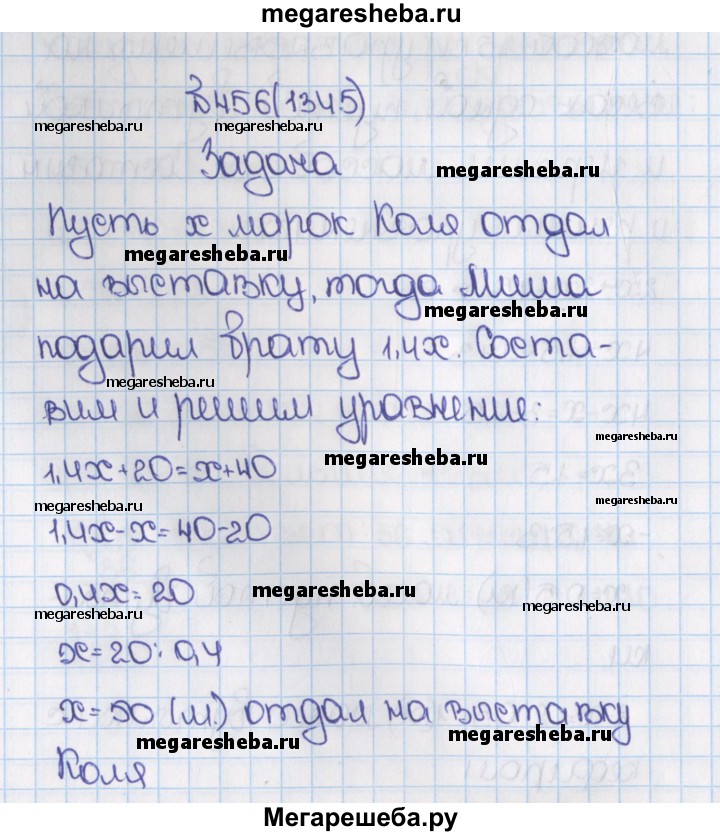 megaresheba.ru
№456(1345)
megaresheba.ru megaresheba.ru
Задача
megaresheba.ru
Пусть x марок Коля отдал
megaresheba.ru
на выставку, тогда Миша
megaresheba.ru
подарил брату 1,4x. Соста-
megaresheba.ru
вим и решим уравнение:
megaresheba.ru
megaresheba.ru
1,4x+20=x+40
megaresheba.ru
1,4x-x=40-20
megaresheba.ru
0,4x=20
megaresheba.ru megaresheba.ru
x=20:0,4
x=50 (м.) отдал на выставку
megaresheba.ru megaresheba.ru
Коля
Мегарешеба.ру